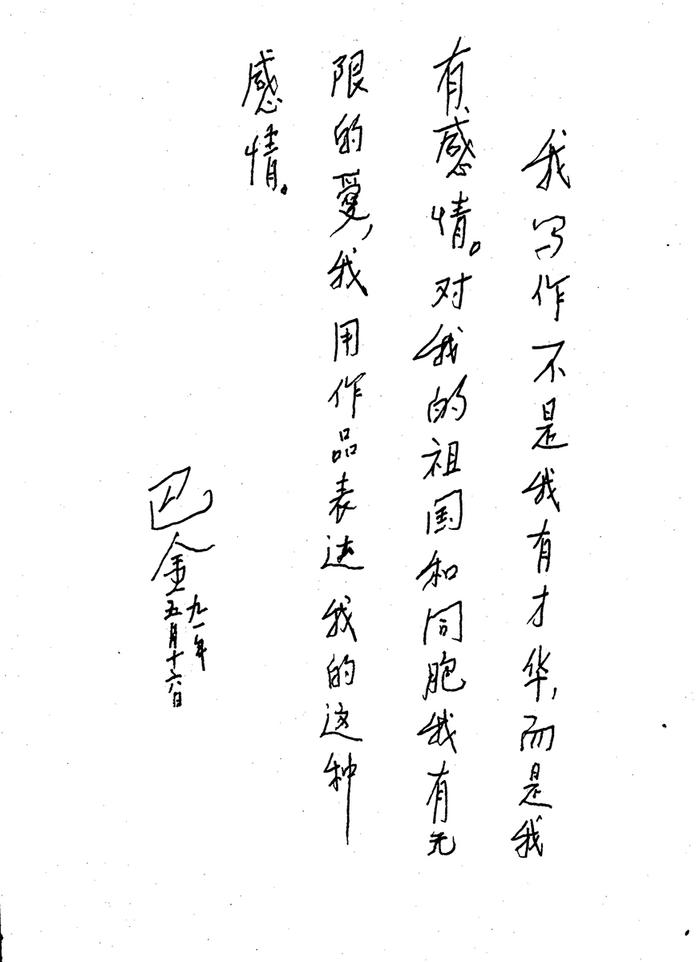 我写作不是我有才华,而是我
有感情。对我的祖国和同胞我有无
限的愛,我用作品表达我的这种
感情。
巴金
九一年
五月十六日